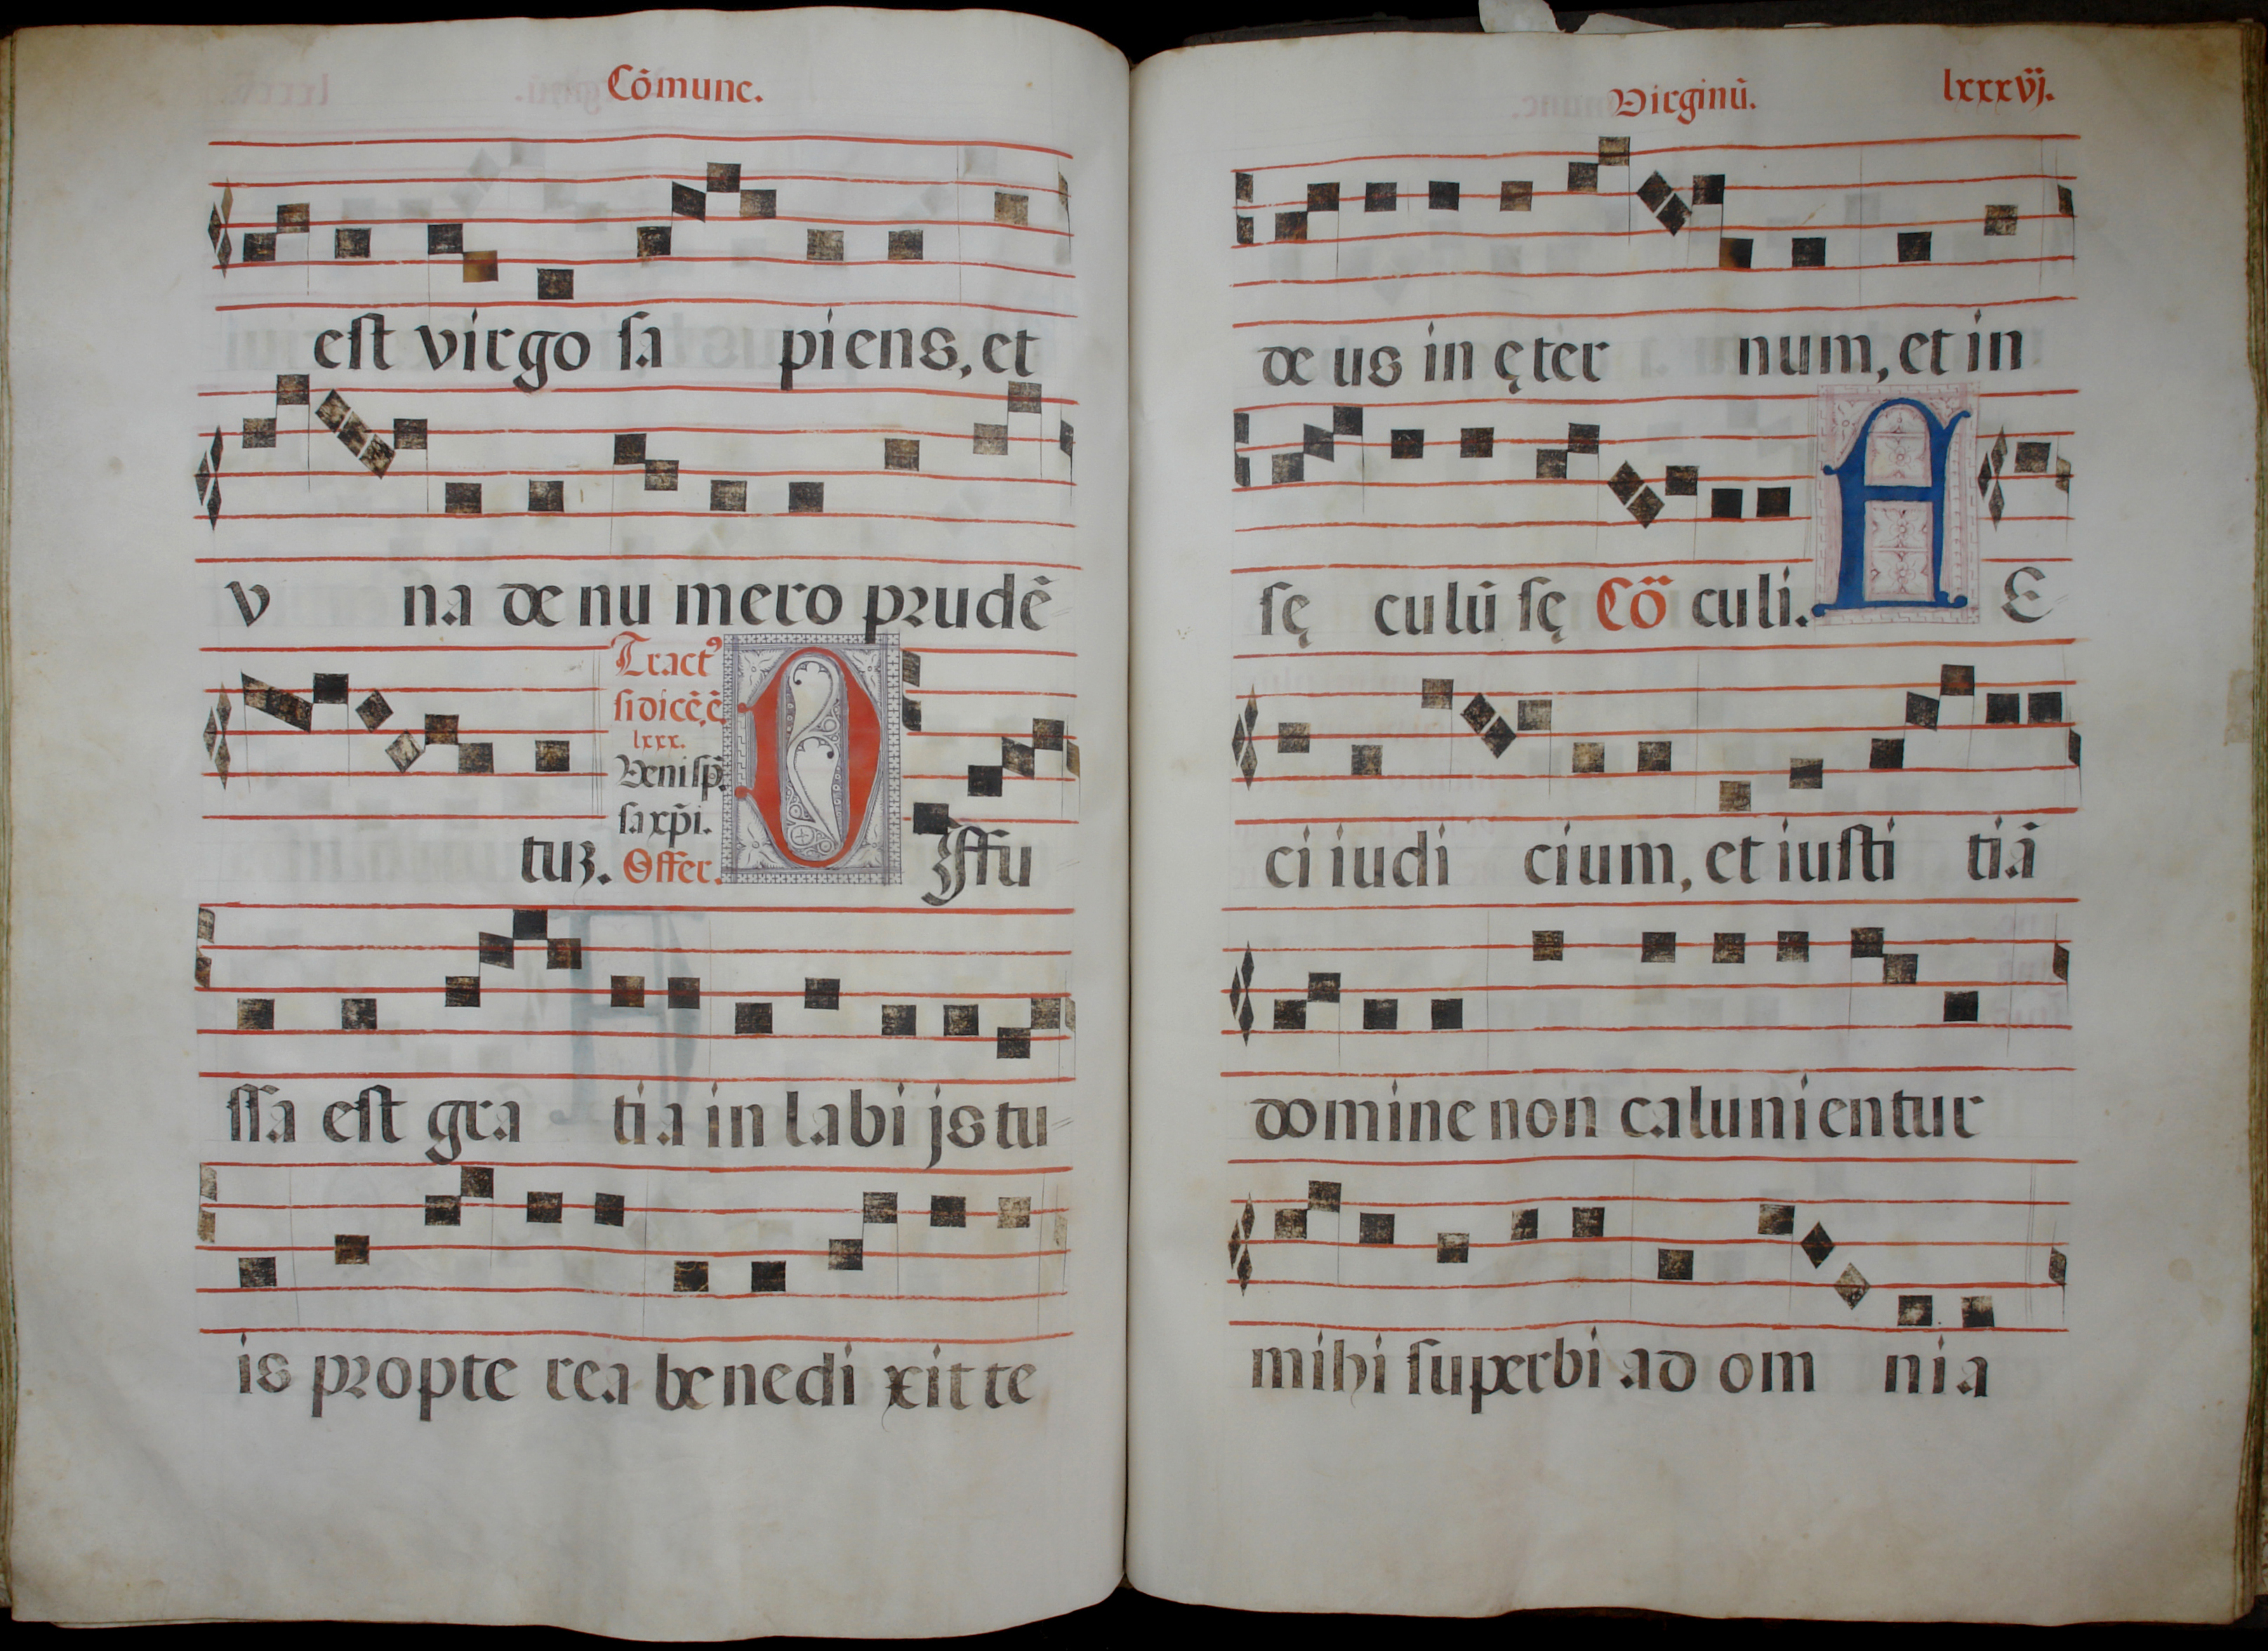 Cōmune.
est virgo sa piens, et
v na de nu mero prudē
Tract⁹
si dicēē
lxxx.
Veni sp̄
sa xp̄i.
tuꝫ. Offer. D Iffu
ssa est gra tia in labi js tu-
is propte rea benedi xit te
Virginū. lxxxvj.
de us in ęter num, et in
sę culū sę Cō culi. A E
ci iudi cium, et iusti tiā
domine non caluni entur
mihi superbi ad om nia